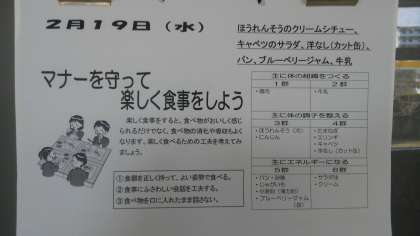 2月19日（水）
ほうれんそうのクリームシチュー、
キャベツのサラダ、洋なし（カット缶）、
パン、ブルーベリージャム、牛乳
マナーを守って
楽しく食事をしよう
楽しく食事をすると、食べ物がおいしく感じ
られるだけでなく、食べ物の消化や吸収もよく
なります。楽しく食べるための工夫を考えてみ
ましょう。
①食器を正しく持って、よい姿勢で食べる。
②食事にふさわしい会話を工夫する。
③食べ物を口に入れたまま話さない。
主に体の組織をつくる
1群 2群
・鶏肉 ・牛乳
主に体の調子を整える
3群 4群
・ほうれんそう（冷） ・たまねぎ
・にんじん ・エリンギ
・キャベツ
・洋なし（カット缶）
主にエネルギーになる
5群 6群
・パン ・サラダ油
・じゃがいも ・クリーム
・ブルーベリージャム